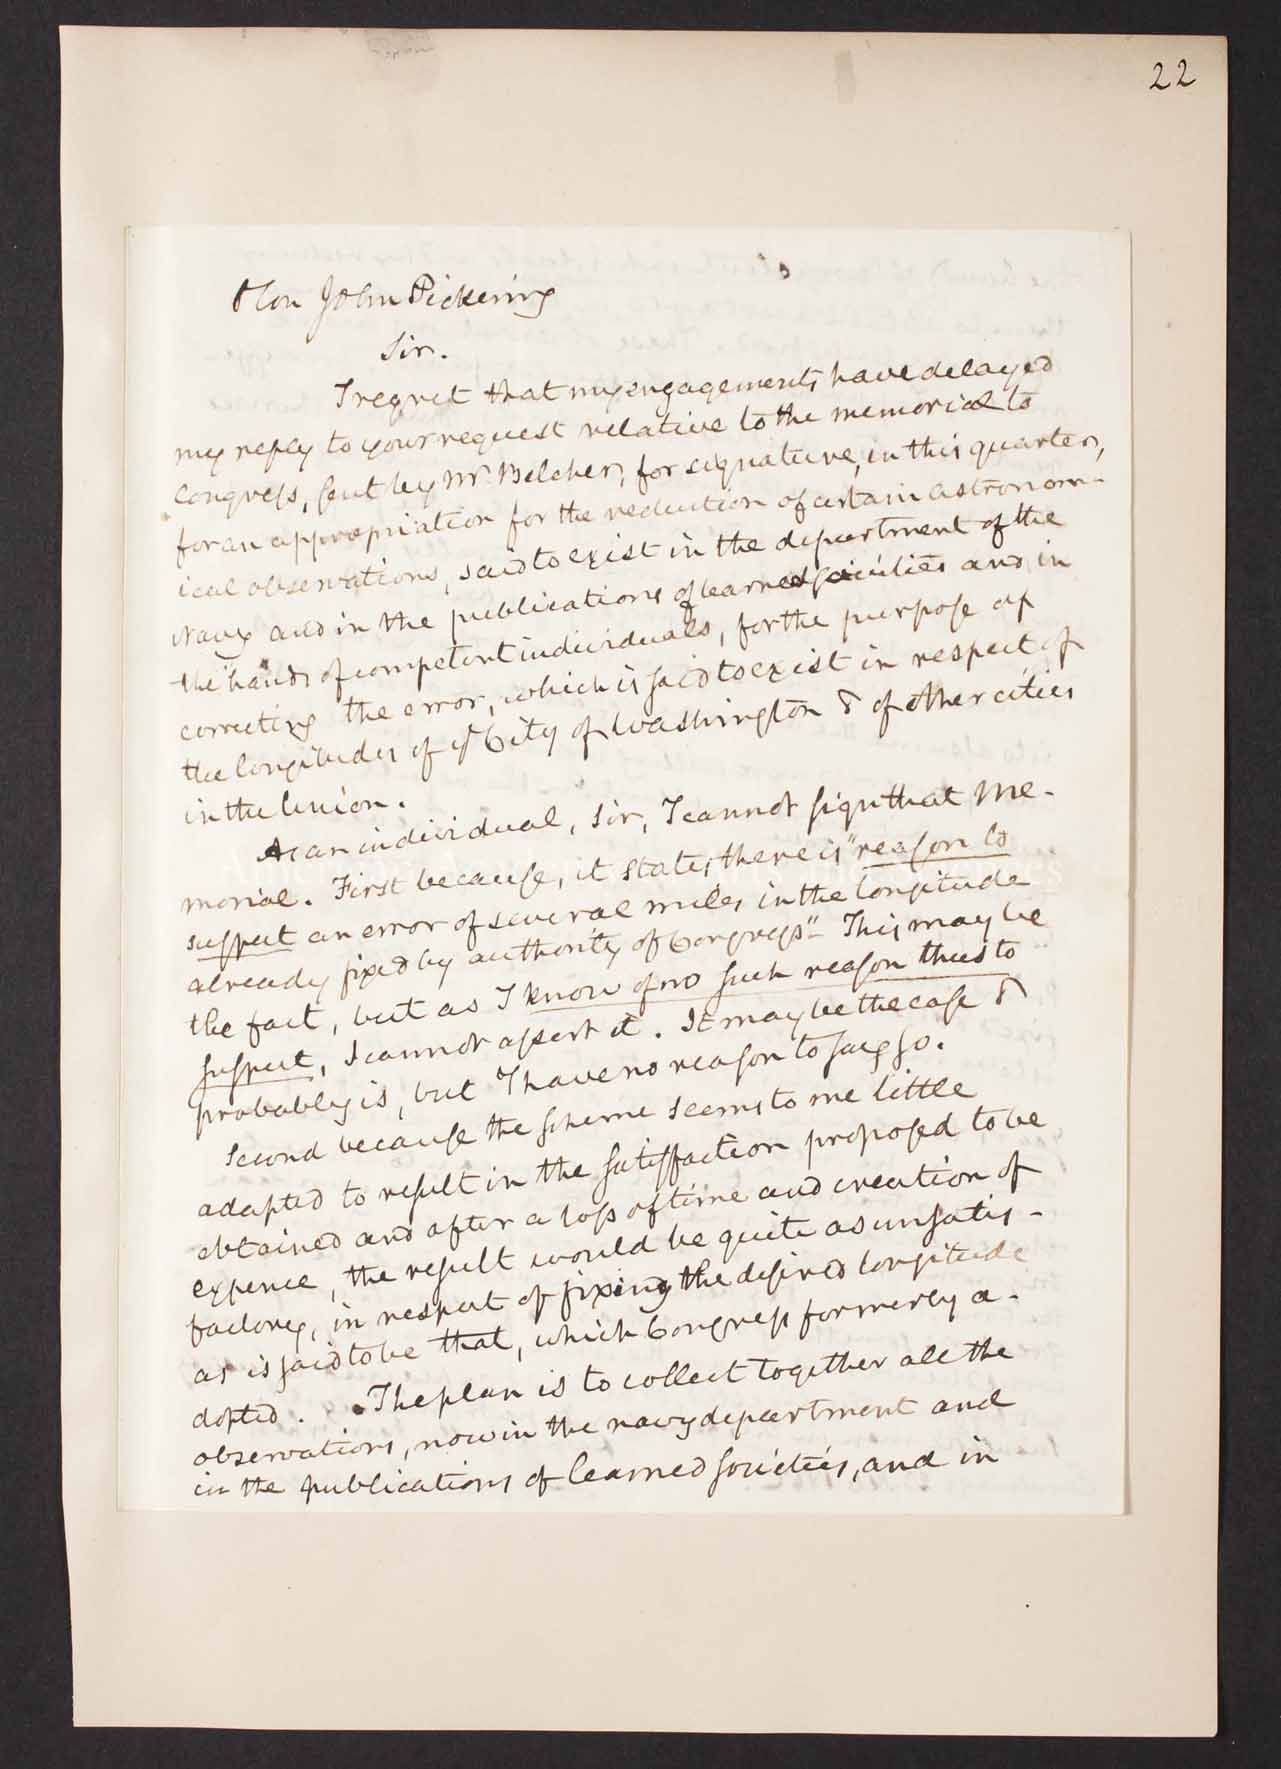 22
Hon John Pickering
Sir.
I regret that my engagements have delayed
my reply to your request relative to the memorial to
Congress, sent by Mr. Belcher, for signature, in this quarter,
for an appropriation for the reduction of certain astronom-
ical observations, said to exist in the department of the
Navy and in the publications of learned societies and in
the "hands of competent individuals, for the purpose of
correcting the error, which is said to exist in respect of
the longitudes of ye City of Washington & of other cities
in the Union.
As an individual, Sir, I cannot sign that Me-
morial. First because, it states, there is "reason to
suspect an error of several miles, in the longitude
already fixed by authority of Congress" – This may be
the fact, but as I know of no such reason thus to
suspect, I cannot assert it. It may be the case &
probably is, but I have no reason to say so.
Second because the scheme seems to me little
adapted to result in the satisfaction proposed to be
obtained and after a loss of time and creation of
expence, the result would be quite as unsatis-
factory, in respect of fixing the desired longitude
as is said to be that, which Congress formerly a-
dopted. The plan is to collect together all the
observations, now in the navy department and
in the publications of learned societies, and in